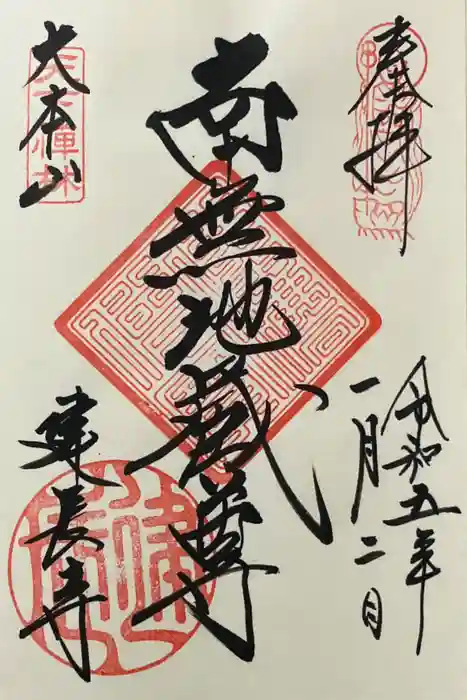 奉拝
令和五年
一月二日
南無地蔵尊
大本山
建長寺